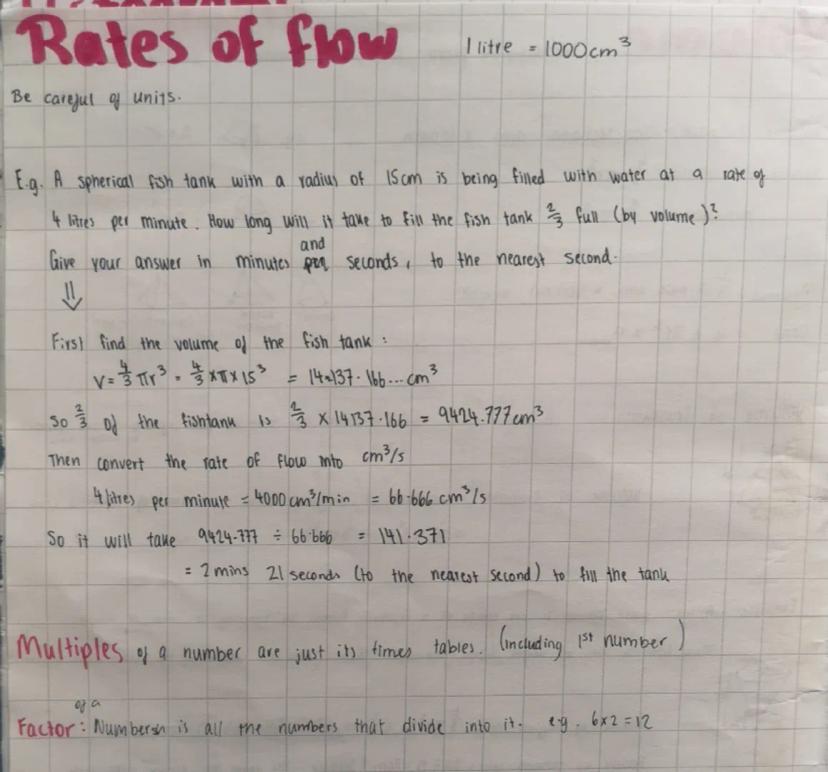 Rates of flow 1 litre = 1000cm³
Be careful of units.
E.g. A spherical fish tank with a radius of 15cm is being filled with water at a rate of
4 litres per minute. How long will it take to fill the fish tank 2/3 full (by volume)?
and
Give your answer in minutes seconds, to the nearest second.
⇓
First find the volume of the fish tank :
V = 4/3 πr³ = 4/3 × π × 15³ = 14137.166... cm³
So 2/3 of the fishtank is 2/3 × 14137.166 = 9424.777cm³
Then convert the rate of flow into cm³/s
4 litres per minute = 4000cm³/min = 66.666 cm³/s
So it will take 9424.777 ÷ 66.666 = 141.371
= 2 mins 21 seconds (to the nearest second) to fill the tank
Multiples of a number are just its times tables. (including 1st number)
of a
Factor : Number is all the numbers that divide into it. e.g. 6×2=12